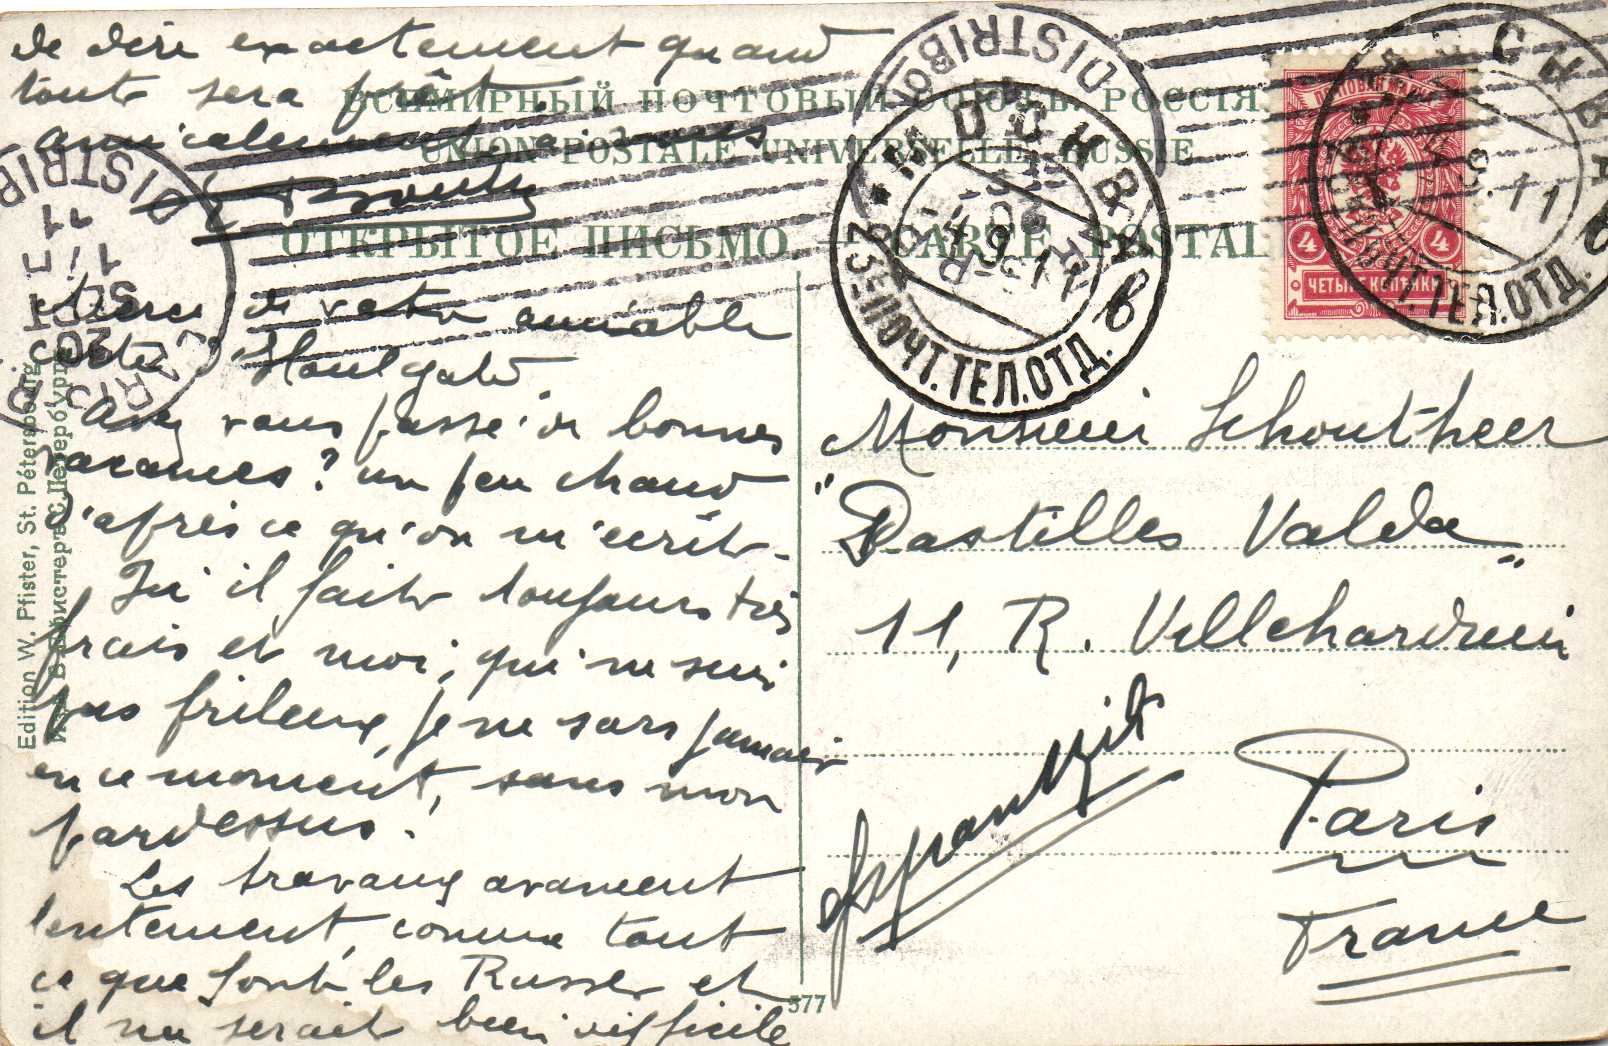 de dire exactement quand
tout sera prêt.
amicalement à vous
ВСЕМИРНЫЙ ПОЧТОВЫЙ СОЮЗЪ. РОССІЯ
UNION POSTALE UNIVERSELLE. RUSSIE
ОТКРЫТОЕ ПИСЬМО. — CARTE POSTALE
Merci de votre aimable
carte d'Houlgate.
Avez vous passé de bonnes
vacances? un peu chaud
d'après ce qu'on m'écrit.
Ici il fait toujours très
frais et moi, qui ne suis
pas frileux, je ne sors jamais
en ce moment, sans mon
pardessus.
Les travaux avancent
lentement, comme tout
ce que font les Russes et
il me serait bien difficile
Monsieur Schoutheer
"Pastilles Valda"
11, R. Villehardouin
Paris
France
Францiя
Edition W. Pfister, St. Pétersbourg
377
МОСКВА
23Е ПОЧТ.ТЕЛ.ОТД.
-4.9.11
МОСКВА
ПОЧТ.ТЕЛ.ОТД.
9.11
DISTRIBON
PARIS
DISTRIB
20
SEPT
11
4
4
ЧЕТЫРЕ КОПѢЙКИ